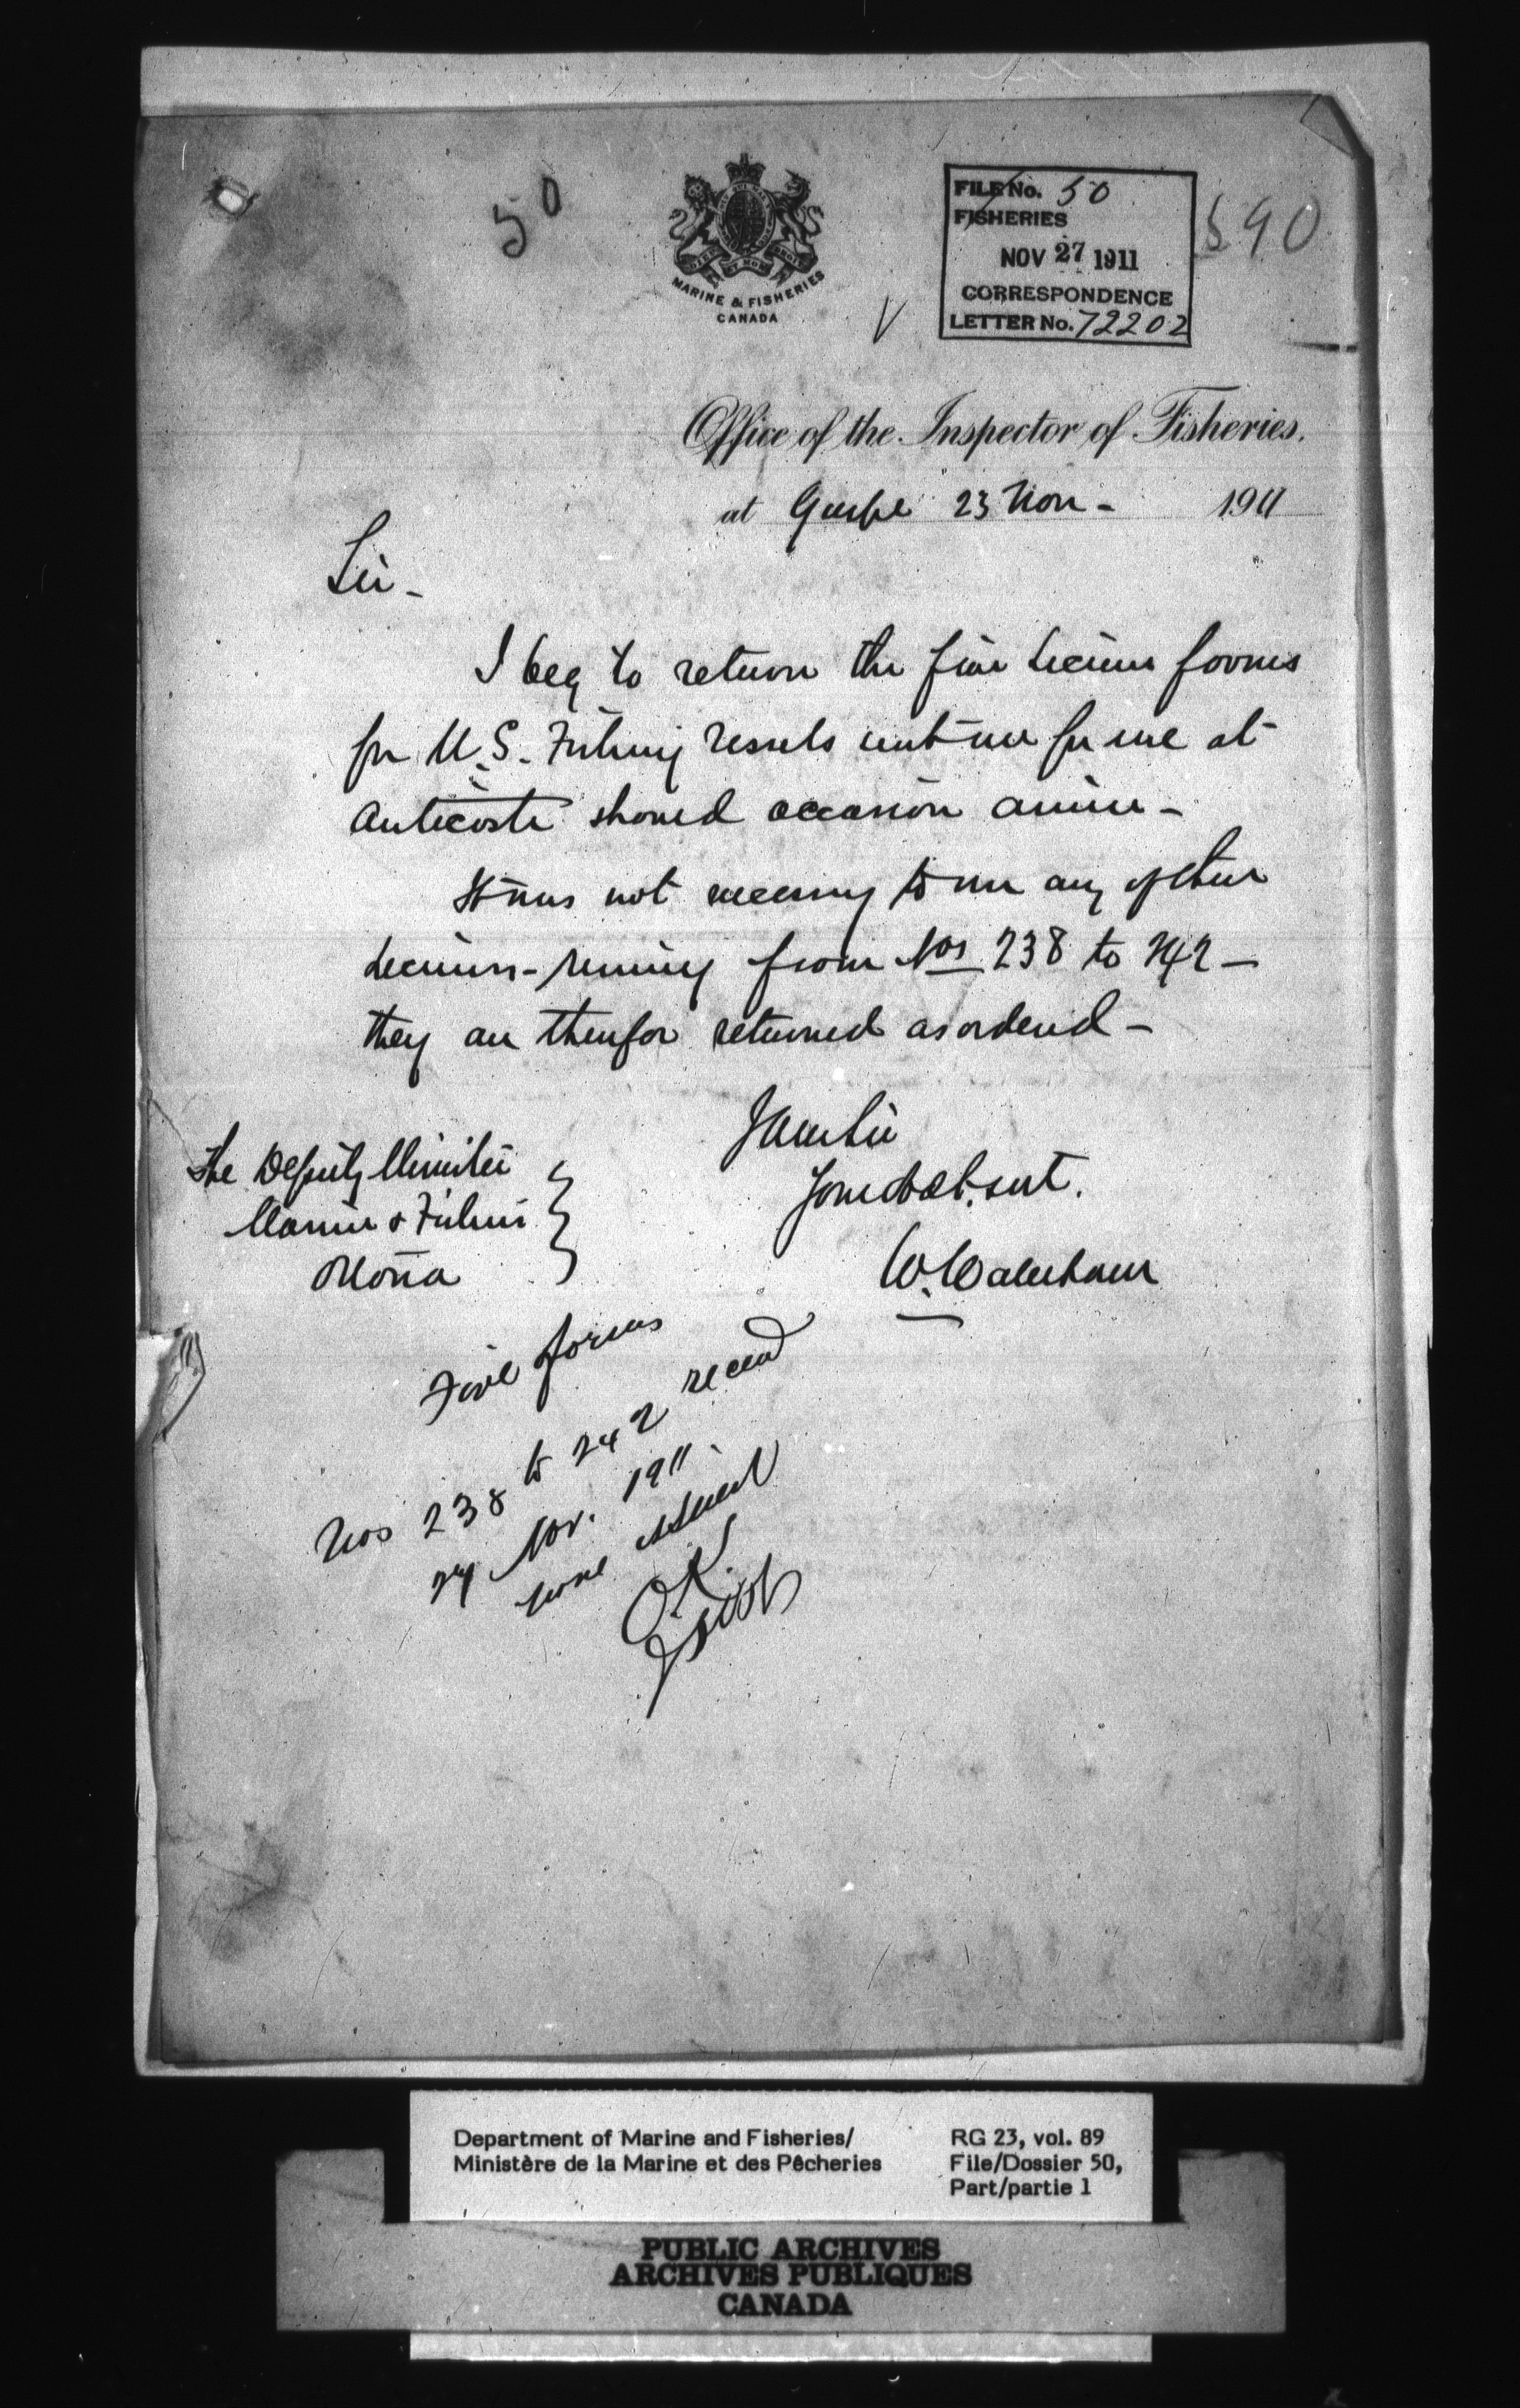 50
MARINE & FISHERIES
CANADA
FILE No. 50
FISHERIES
NOV 27 1911
CORRESPONDENCE
LETTER No. 72202
590
Office of the Inspector of Fisheries.
at Gaspe 23 Nov - 1911
Sir -
I beg to return the five license forms
for U.S. Fishing Vessels sent me for use at
Anticosti should occasion arise -
It was not necessary to use any of these
Licenses - running from Nos 238 to 242 -
they are therefor returned as ordered -
I am Sir
Your obdt. svt.
W. Wakeham
The Deputy Minister
Marine & Fisheries
Ottawa
Five forms
Nos 238 to 242 recevd
27 Nov. 1911
none issued
O.K.
Department of Marine and Fisheries/
Ministère de la Marine et des Pêcheries
RG 23, vol. 89
File/Dossier 50,
Part/partie 1
PUBLIC ARCHIVES
ARCHIVES PUBLIQUES
CANADA